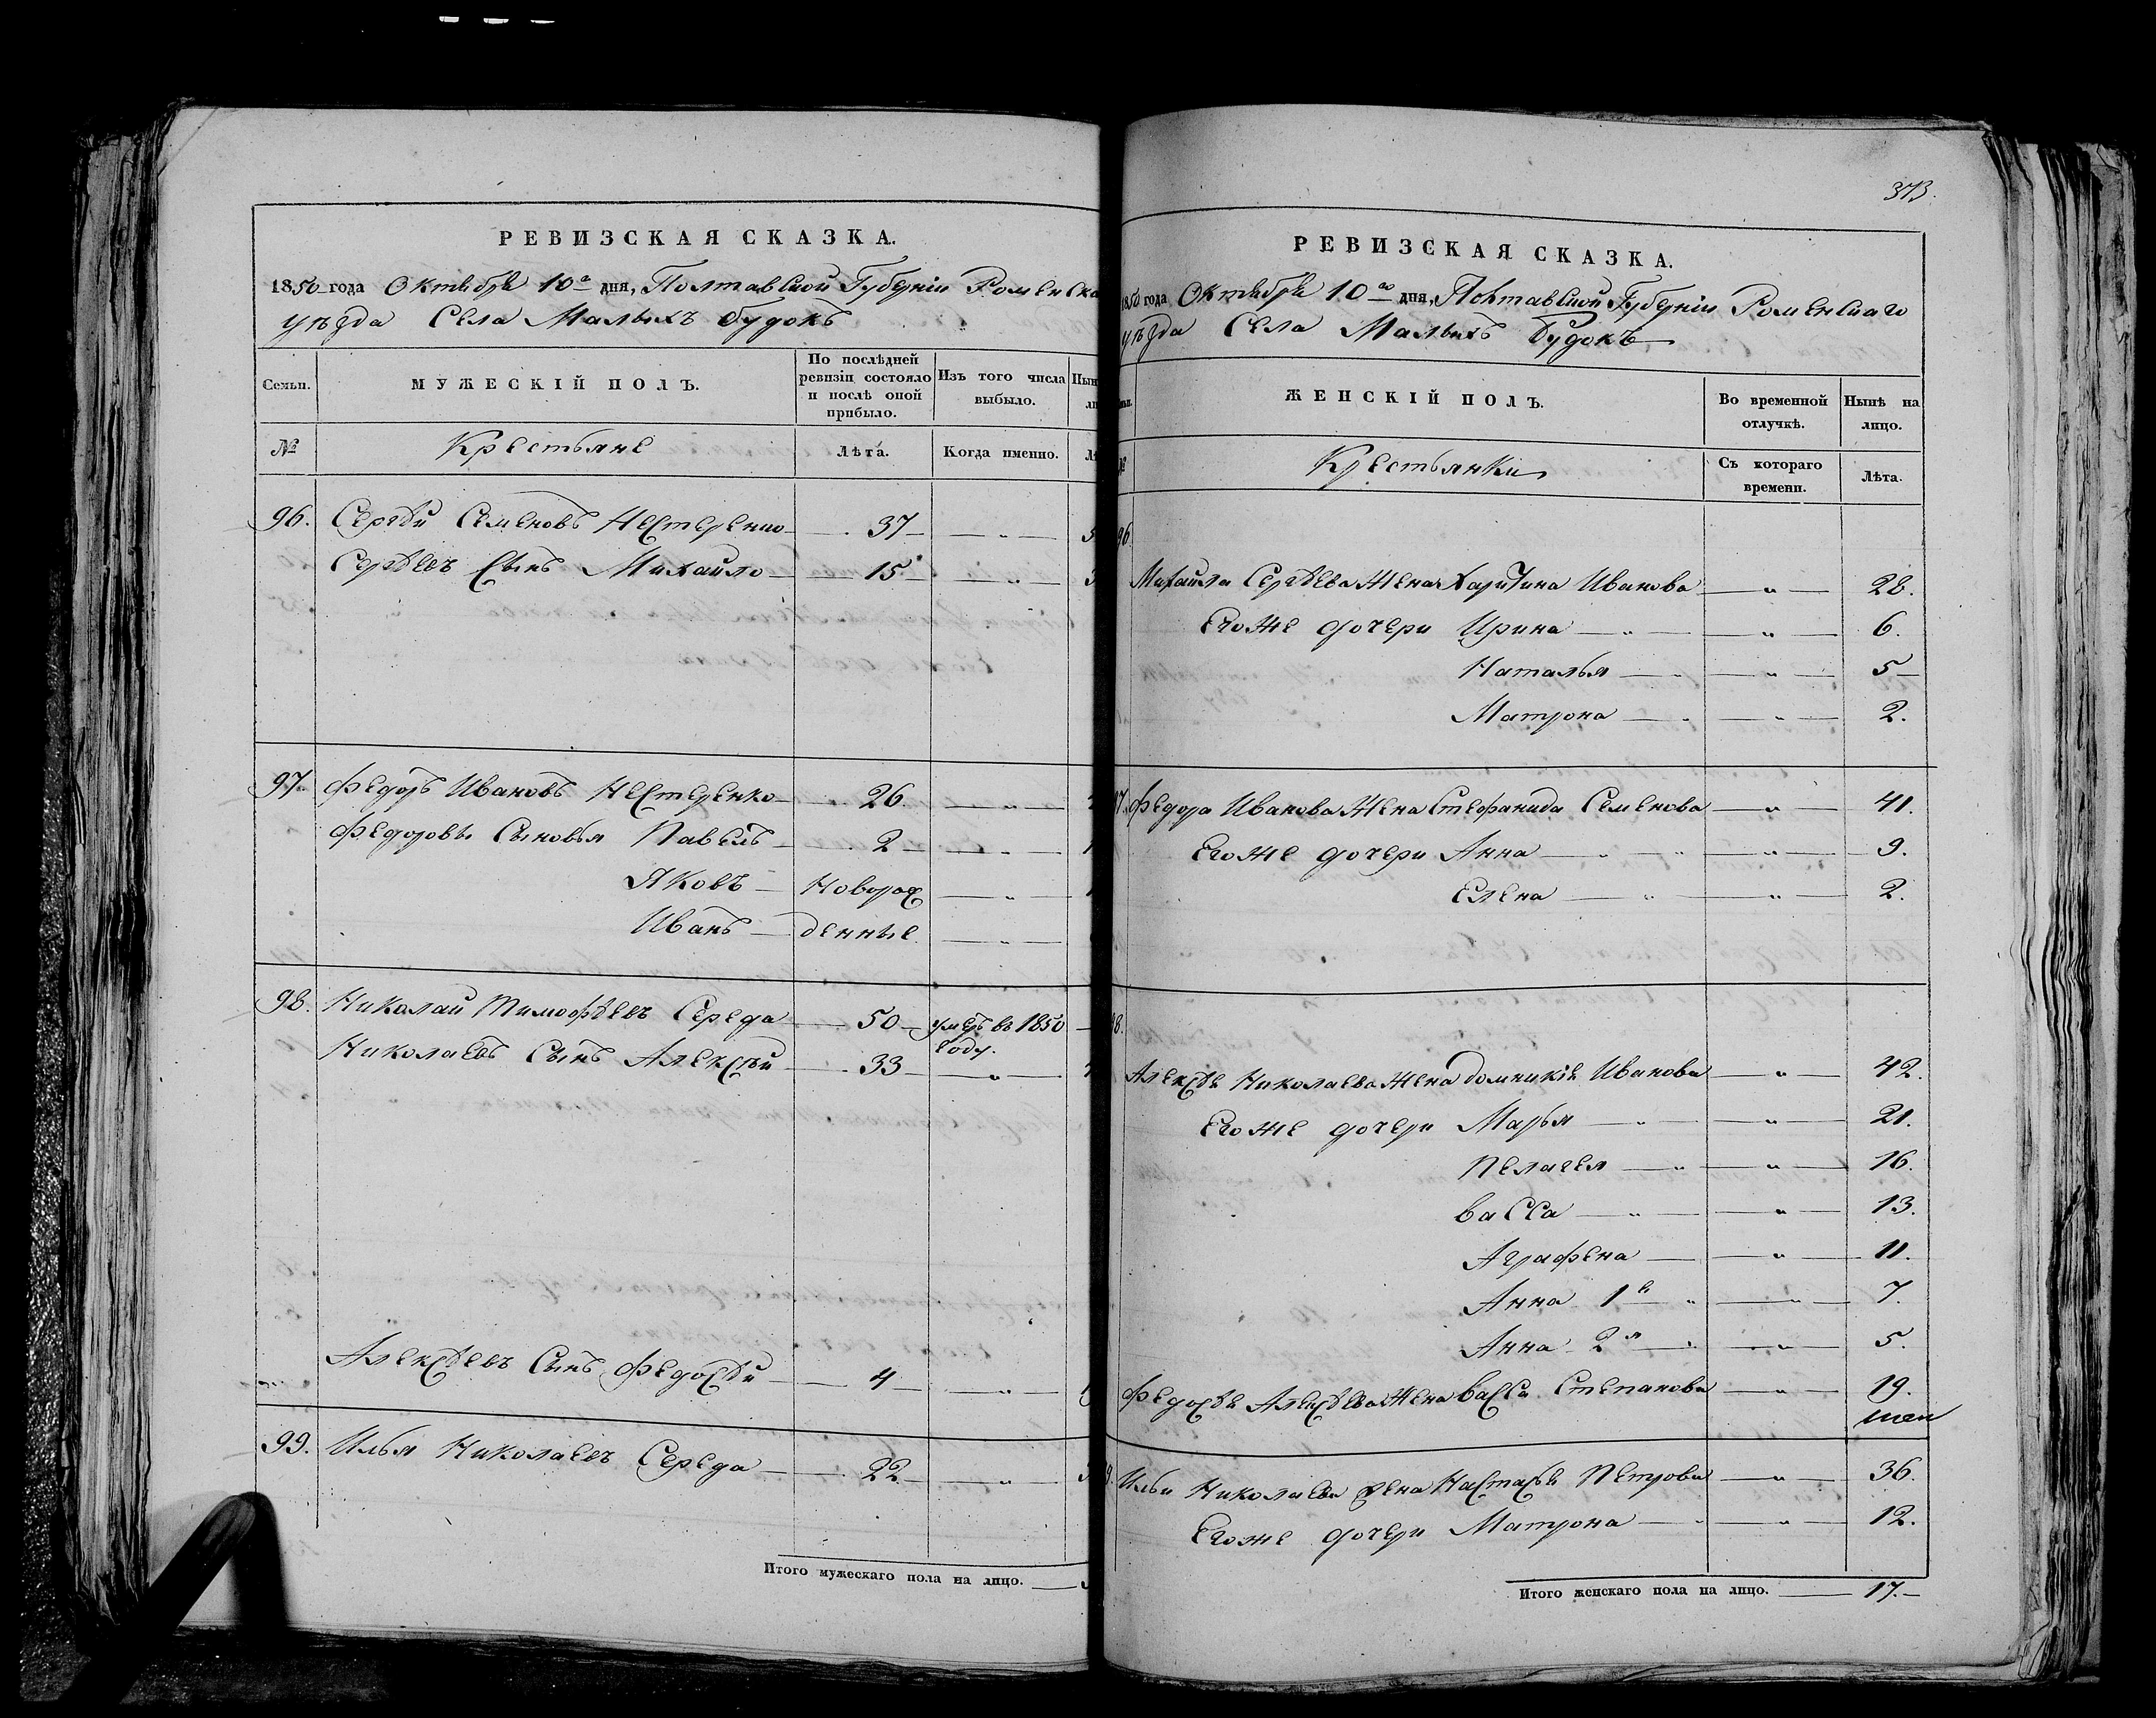 РЕВИЗСКАЯ СКАЗКА.
1850 года Октября 10го дня, Полтавской Губернiи Роменска
уѣзда Села Малыхъ будокъ
Семьи. МУЖЕСКІЙ ПОЛЪ. По послѣдней ревизіи состояло и послѣ оной прибыло. Изъ того числа выбыло.
№ Крестьяне Лѣта. Когда именно.
96. Сергѣй Семеновъ Нестеренко 37
Сергѣевъ Сынъ Михайло 15
97. Федоръ Ивановъ Нестеренко 26
Федоровы Сыновья Павелъ 2
Яковъ Новорож
Иванъ денные
98. Николай Тимофѣевъ Середа 50 умеръ въ 1850 году.
Николаевъ Сынъ Алексѣй 33
Алексѣевъ Сынъ Федосѣй 4
99. Илья Николаевъ Середа 22
Итого мужескаго пола на лицо.
373.
РЕВИЗСКАЯ СКАЗКА.
1850 года Октября 10го дня, Полтавской Губернiи Роменскаго
уѣзда Села Малыхъ Будокъ
ЖЕНСКІЙ ПОЛЪ. Во временной отлучкѣ. Нынѣ на лицо.
№ Крестьянки Съ котораго времени. Лѣта.
96.
Михайла Сергѣева Жена Харитина Иванова 28.
Его же дочери Ирина 6.
Наталья 5
Матрона 2.
97. Федора Иванова Жена Стефанида Семенова 41.
Его же дочери Анна 9.
Елена 2.
98.
Алексѣя Николаева Жена Домникiя Иванова 42.
Его же дочери Марья 21.
Пелагея 16.
Васса 13.
Аграфена 11.
Анна 1я 7.
Анна 2я 5.
Федосѣя Алексѣева Жена Васса Степанова 19.
Ильи Николаева жена Настасья Петрова 36.
Его же дочери Матрона 12.
Итого женскаго пола на лицо. 17.